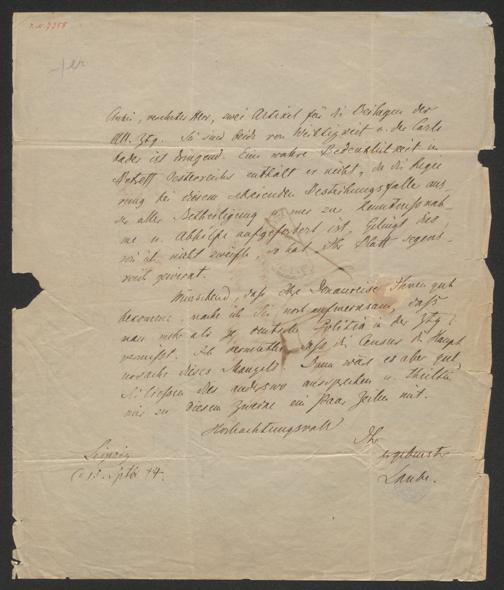 Anbei, verehrter Herr, zwei Artikel für die Beilagen der
Allg. Ztg. Sie sind beide von Wichtigkeit u. der Carls
bader ist dringend. Eine wahre Bedenklichkeit in
Betreff Oesterreichs enthält er nicht, da die Regie
rung bei diesem schreienden Bestechungsfalle aus
ser aller Betheiligung u. nur zur Kenntnissnah
me u. Abhilfe aufgefordert ist. Gelingt dies
wie ich nicht zweifle, so hat Ihr Blatt segens
reich gewirkt.
Wünschend, dass Ihre Donaureise Ihnen gut
bekomme, mache ich Sie noch aufmerksam, dass
man mehr als je deutsche Politik in der Ztg.
vermisst. Ich vermuthe, dass die Censur die Haupt
ursache dieses Mangels. Dann wär es aber gut
Sie liessen dies anderswo aussprechen u. theilten
mir zu diesem Zwecke ein Paar Zeilen mit.
Hochachtungsvoll
Ihr
ergebenster
Laube.
Leipzig
Septbr 44.